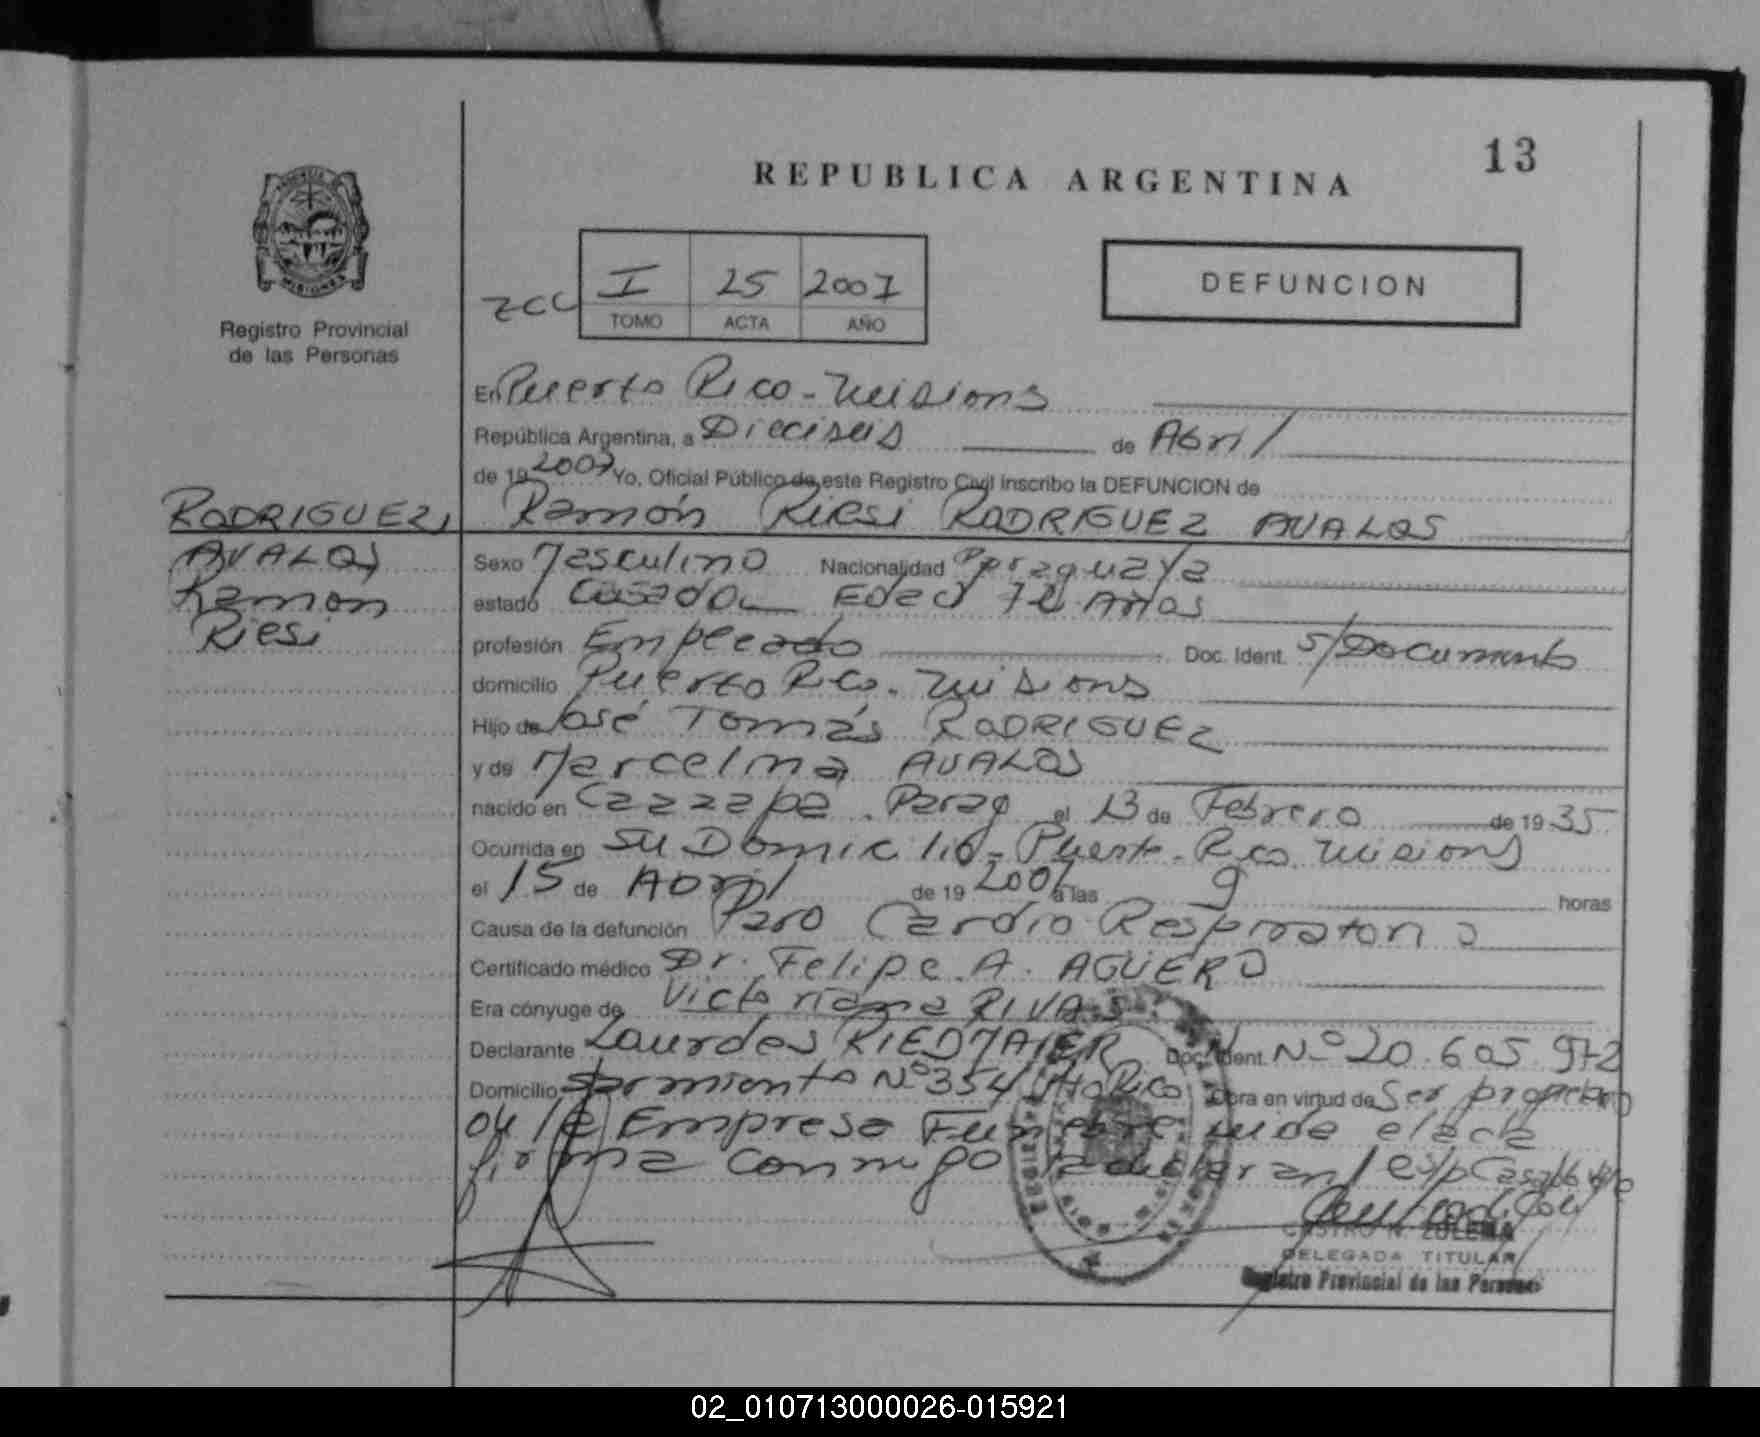 13
REPUBLICA ARGENTINA
PROVINCIA DE
MISIONES
Registro Provincial
de las Personas
I 25 2007
TOMO ACTA AÑO
DEFUNCION
En Puerto Rico - Misiones
República Argentina, a Dieciseis de Abril
de 19 2007 Yo, Oficial Público de este Registro Civil inscribo la DEFUNCION de
Ramón Riesi RODRIGUEZ AVALOS
RODRIGUEZ,
AVALOS
Ramon
Riesi
Sexo Masculino Nacionalidad Paraguaya
estado Casado Edad 72 Años
profesión Empleado Doc. Ident. S/Documento
domicilio Puerto Rico. Misiones
Hijo de José Tomás RODRIGUEZ
y de Marcelina AVALOS
nacido en Caazapá. Parag el 13 de Febrero de 19 35
Ocurrida en su Domicilio - Puerto Rico Misiones
el 15 de Abril de 19 2007 a las 9 horas
Causa de la defunción Paro Cardio Respiratorio
Certificado médico Dr. Felipe A. AGUERO
Era cónyuge de Victoriana RIVAS
Declarante Lourdes RIEDMAIER Doc. Ident. Nº 20.605.972
Domicilio Sarmiento Nº 354 Pto Rico Obra en virtud de Ser propietario
de la Empresa Funebre el acta
firma conmigo
CASTRO N. ZULEMA
DELEGADA TITULAR
Registro Provincial de las Personas
02_010713000026-015921